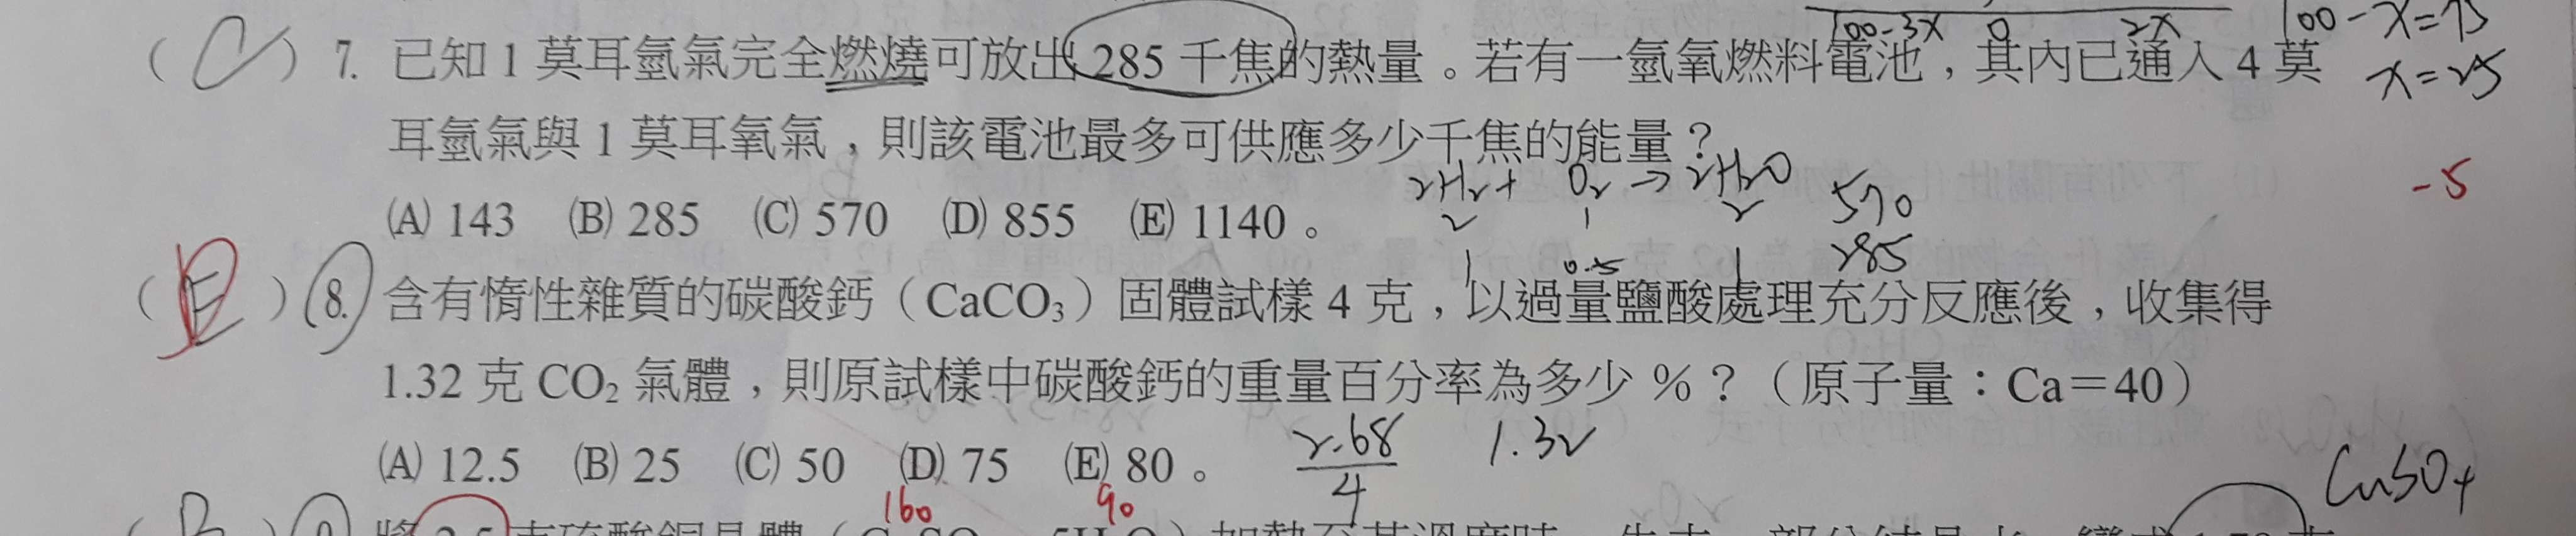 100-3x 0 2x 100-x=75
(C) 7. 已知1莫耳氫氣完全燃燒可放出285千焦的熱量。若有一氫氧燃料電池,其內已通入4莫
x=25
耳氫氣與1莫耳氧氣,則該電池最多可供應多少千焦的能量?
2H2+ O2 → 2H2O
-5
(A) 143 (B) 285 (C) 570 (D) 855 (E) 1140。
2 1 2 570
1 0.5 1 285
(E) 8. 含有惰性雜質的碳酸鈣(CaCO₃)固體試樣4克,以過量鹽酸處理充分反應後,收集得
1.32克CO₂氣體,則原試樣中碳酸鈣的重量百分率為多少%?(原子量:Ca=40)
(A) 12.5 (B) 25 (C) 50 (D) 75 (E) 80。
2.68/4 1.32
CuSO4
160 90